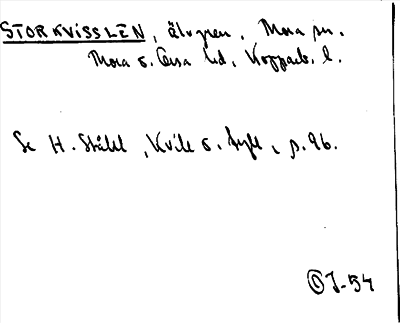 STORKVISSLEN, älvgren, Mora sn.
Mora o. Orsa tid, Kopparb. l.
Se H. Ståhl, Kvill o. fyll, s. 96.
OJ-54